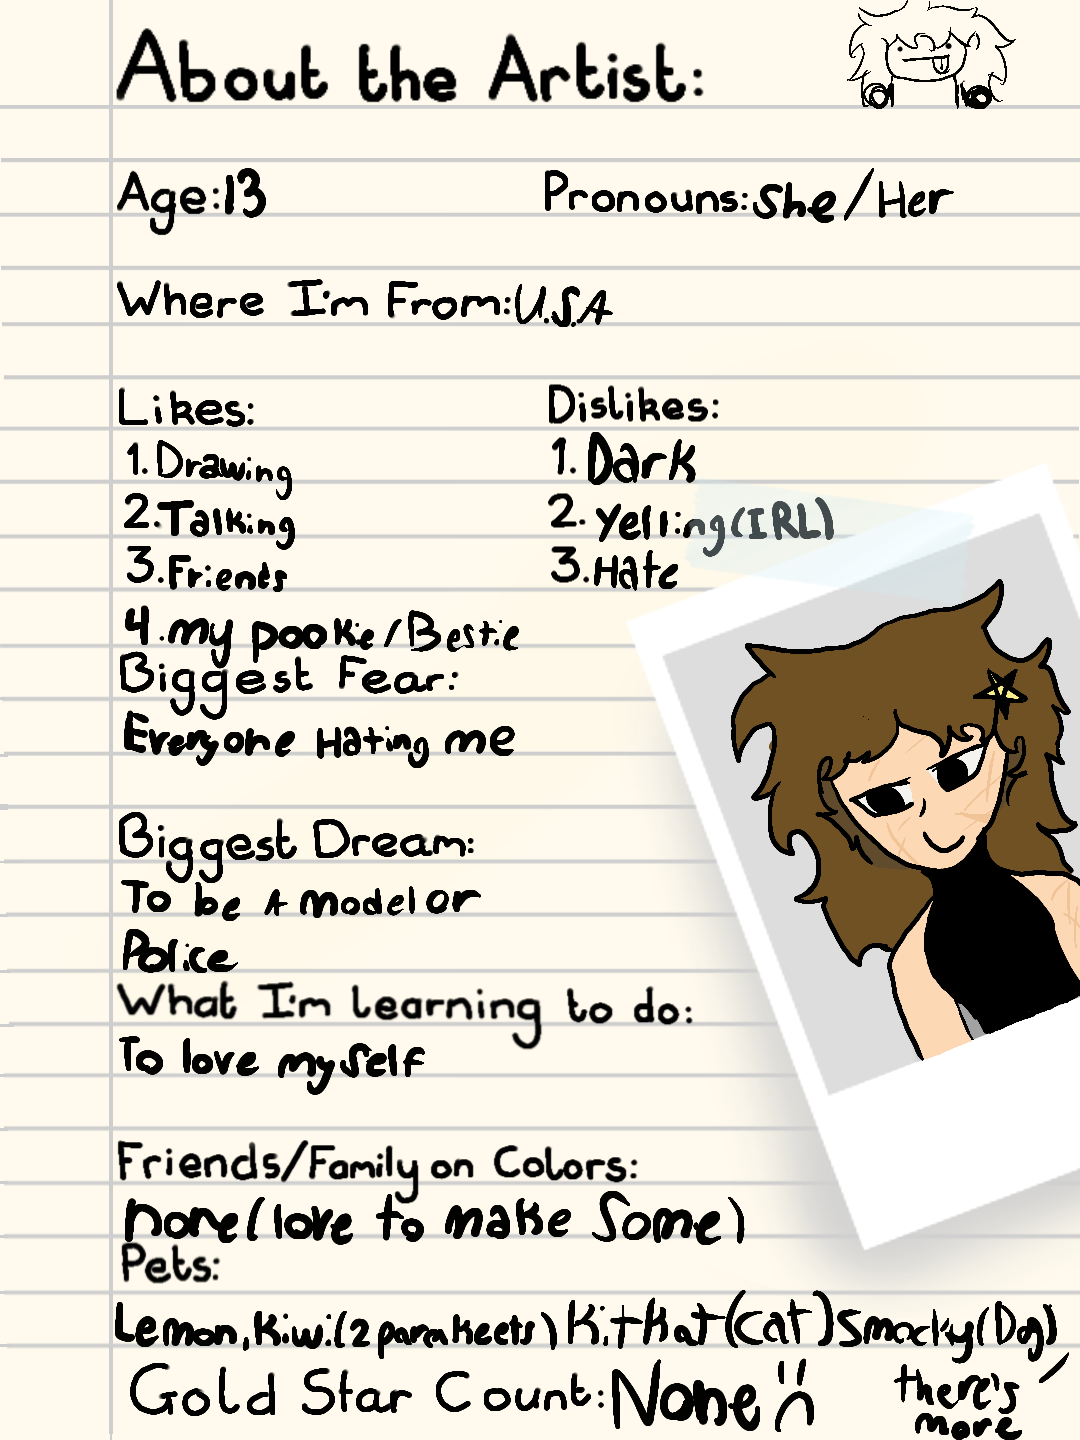 About the Artist:
Age:13 Pronouns:She/Her
Where I'm From:U.S.A
Likes: Dislikes:
1.Drawing 1.Dark
2.Talking 2.Yelling(IRL)
3.Frients 3.Hate
4.my pookie/Bestie
Biggest Fear:
Everyone Hating me
Biggest Dream:
To be A model or
Police
What I'm learning to do:
To love myself
Friends/Family on Colors:
none(love to make Some)
Pets:
Lemon,Kiwi(2 parakeets) KitKat(cat) Smocky(Dog)
Gold Star Count:None there's
more